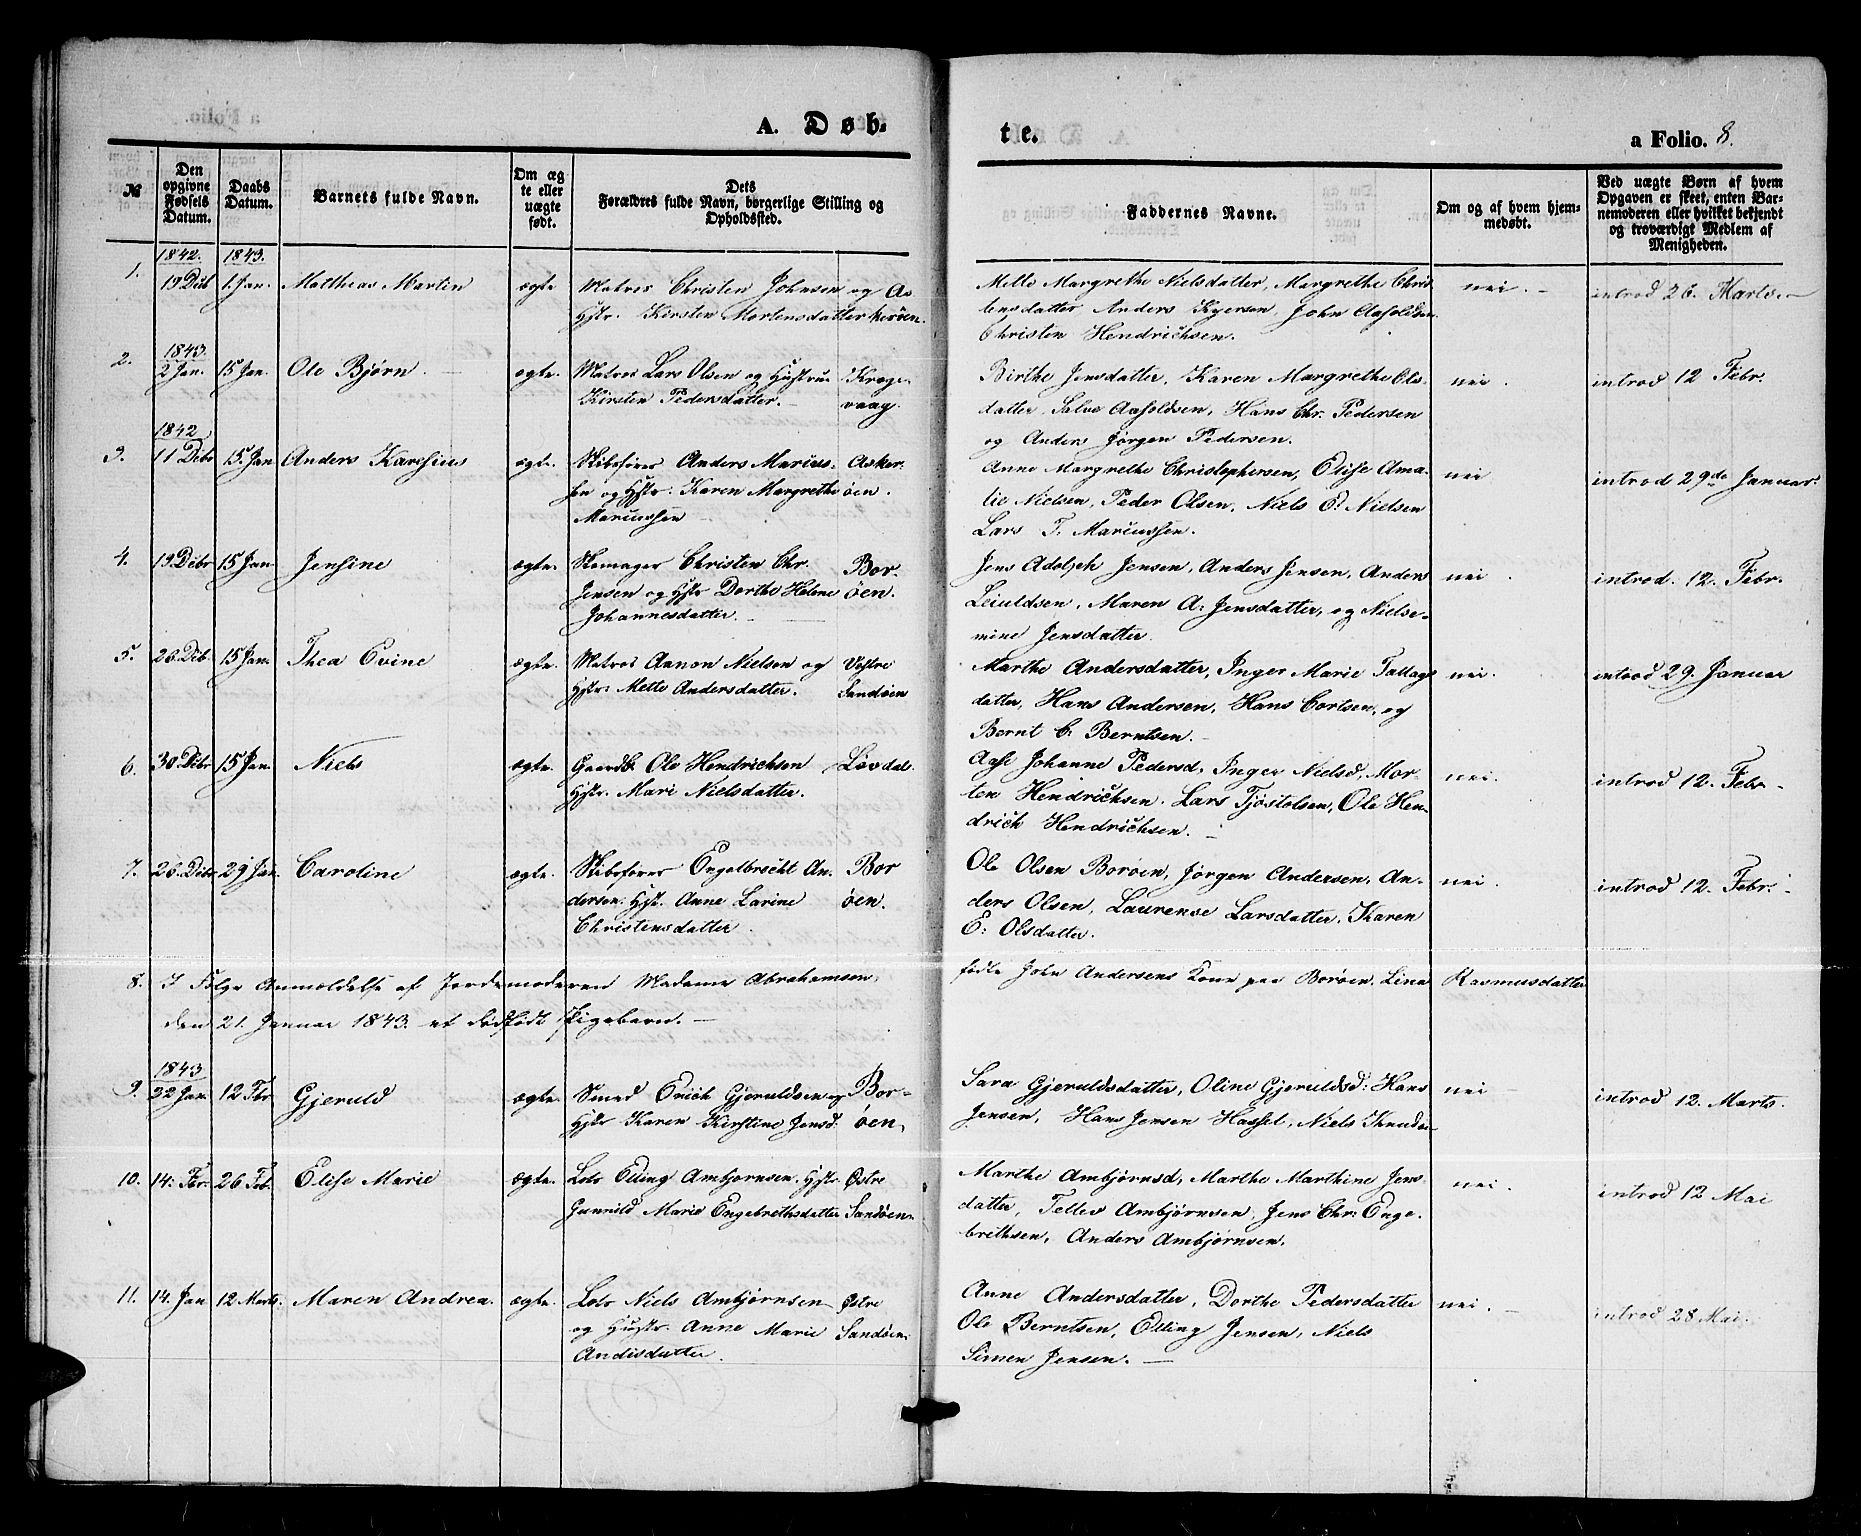 A. Døb-
te.
a Folio. 8.
№
Den opgivne Fødsels Datum.
Daabs Datum.
Barnets fulde Navn.
Om æg te eller uægte født.
Dets Forældres fulde Navn, borgerlige Stilling og Opholdssted.
Faddernes Navne.
Om og af hvem hjem-
medøbt.
Ved uægte Børn af hvem
Opgaven er skeet, enten Bar-
nemoderen eller hvilket bekjendt
og troværdigt Medlem af
Menigheden.
1842. 1843.
1. 19 Deb 1. Jan. Matthias Martin ægte Matros Christen Johnsen og As-
Hstr. Kirsten Mortensdatter kerøen.
Mette Margrethe Nielsdatter, Margrethe Chris
tensdatter Anders John Aasoldsen
Christen Hendrichsen.
nei. - introd 26. Marts. -
1843.
2. 2 Jan. 15 Jan. Ole Bjørn. ægte. Matros Lars Olsen og Hustrue Krage-
Kirsten Pedersdatter. - vaag.
Birthe Jensdatter, Karen Margrethe Ols-
datter, Salve Aasoldsen, Hans Chr. Pedersen
og Anders Jørgen Pedersen.
nei. introd 12 Febr.
1842
3. 11 Debr 15. Jan Anders Karesius ægte. Skibsfører Anders Marius- Asker-
sen og Hstr: Karen Margrethe øen.
Mariussen
Anne Margrethe Christophersen, Elise Ama-
lie Nielsen, Peder Olsen, Niels E: Nielsen
Lars T. Mariussen.
nei introd 29de Januar.
4. 19 Debr 15 Jan Jensine ægte. Skomager Christen Chr. Bor-
Jensen og Hstr Dorthe Helene øen.
Johannesdatter.
Jens Adolph Jensen, Anders Jensen, Anders
Leiuldsen, Maren A: Jensdatter, og Nielse-
mine Jensdatter.
nei. introd. 12. Febr.
5. 26. Deb. 15 Jan. Thea Evine ægte. Matros Aanon Nielsen og Vestre
Hstr: Mette Andersdatter. Sandøen
Marthe Andersdatter, Inger Marie Tallags
datter, Hans Andersen, Hans Cortsen, og
Bernt C. Berntsen.
nei. introd 29. Januar
6. 30 Debr 15 Jan. Niels ægte. Gaardb. Ole Hendrichsen Løvdal.
Hstr. Mari Nielsdatter.
Aase Johanne Pedersd, Inger Nielsd, Mor-
ten Hendrichsen. Lars Tjøstolsen, Ole Hen-
drich Hendrichsen.
nei. introd 12. Febr.
7. 26. Debr 29 Jan. Caroline ægte. Skibsfører Engelbrecht An- Bor
dersen. Hst. Anne Larine øen.
Christensdatter.
Ole Olsen Borøen, Jørgen Andersen, An-
ders Olsen, Laurense Larsdatter, Karen
E: Olsdatter.
nei. introd 12. Febr.
8. I Følge Anmeldelse af Jordemoderen Madame Abrahamsen, fødte John Andersens Kone paa Borøen, Lina Rasmusdatter
den 21. Januar 1843. et dødfødt Pigebarn. -
1843
9. 22 Jan. 12 Fbr Gjeruld ægte. Smed Erich Gjeruldsen og Bor-
Hstr Karen Kirstine Jensd. øen.
Sara Gjeruldsdatter, Oline Gjeruldsd: Hans
Jensen, Hans Jensen Hassel, Niels Knudsen
nei introd 12. Marts.
10. 14. Fbr. 26 Feb. Elise Marie ægte. Lods Elling Ambjornsen. Hstr. Østre
Gunuld Marie Engebrethsdatter Sandøen.
Marthe Ambjørnsd, Marthe Marthine Jens
datter, Tellev Ambjørnsen, Jens Chr: Enge-
brethsen, Anders Ambjørnsen.
nei. introd 12 Mai
11. 14. Jan 12 Marts. Maren Andrea. ægte. Lods Niels Ambjørnsen Østre
og Hustr. Anne Marie Sandøen.
Andisdatter.
Anne Andersdatter, Dorthe Pedersdatter
Ole Berntsen, Elling Jensen, Niels
Simen Jensen. -
nei. - introd 28 Mai.